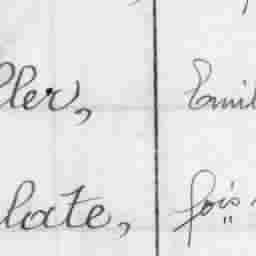 ller, Emil
late, fois